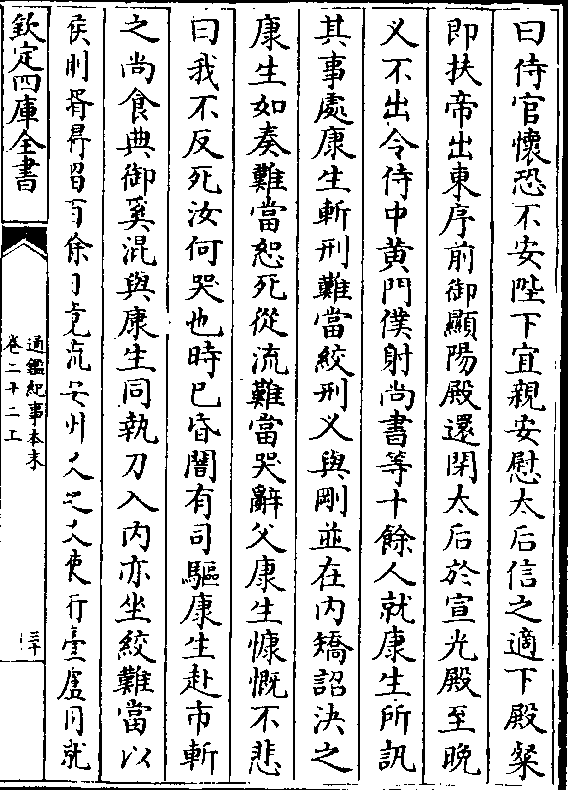 曰侍官懷恐不安陛下宜親安慰太后信之適下殿粲
即扶帝出東序前御顯陽殿還閉太后於宣光殿至晚
义不出令侍中黄門僕射尚書等十餘人就康生所訊
其事處康生斬刑難當絞刑义與剛並在内矯詔決之
康生如奏難當恕死從流難當哭辭父康生慷慨不悲
曰我不反死汝何哭也時已昏闇有司驅康生赴市斬
之尚食典御奚混與康生同執刀入内亦坐絞難當以
侯剛壻得留百餘日竟流安州久之义使行臺盧同就
欽定四庫全書
通鑑紀事本末
卷二十二上
三十